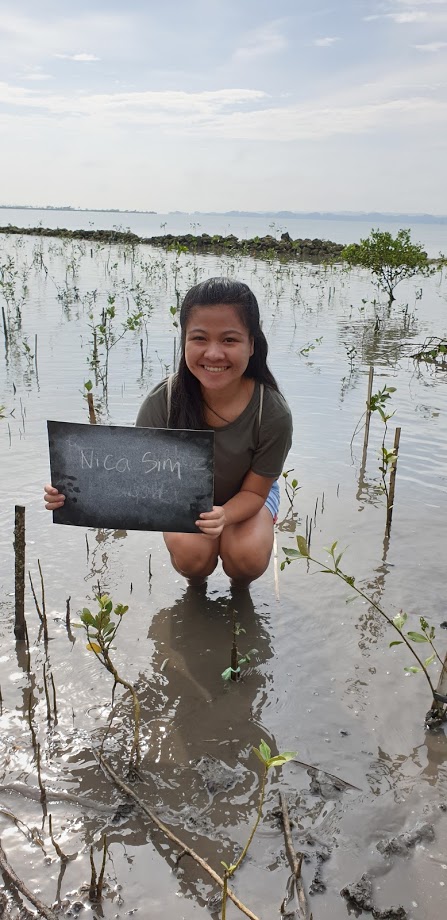 Nica Sim